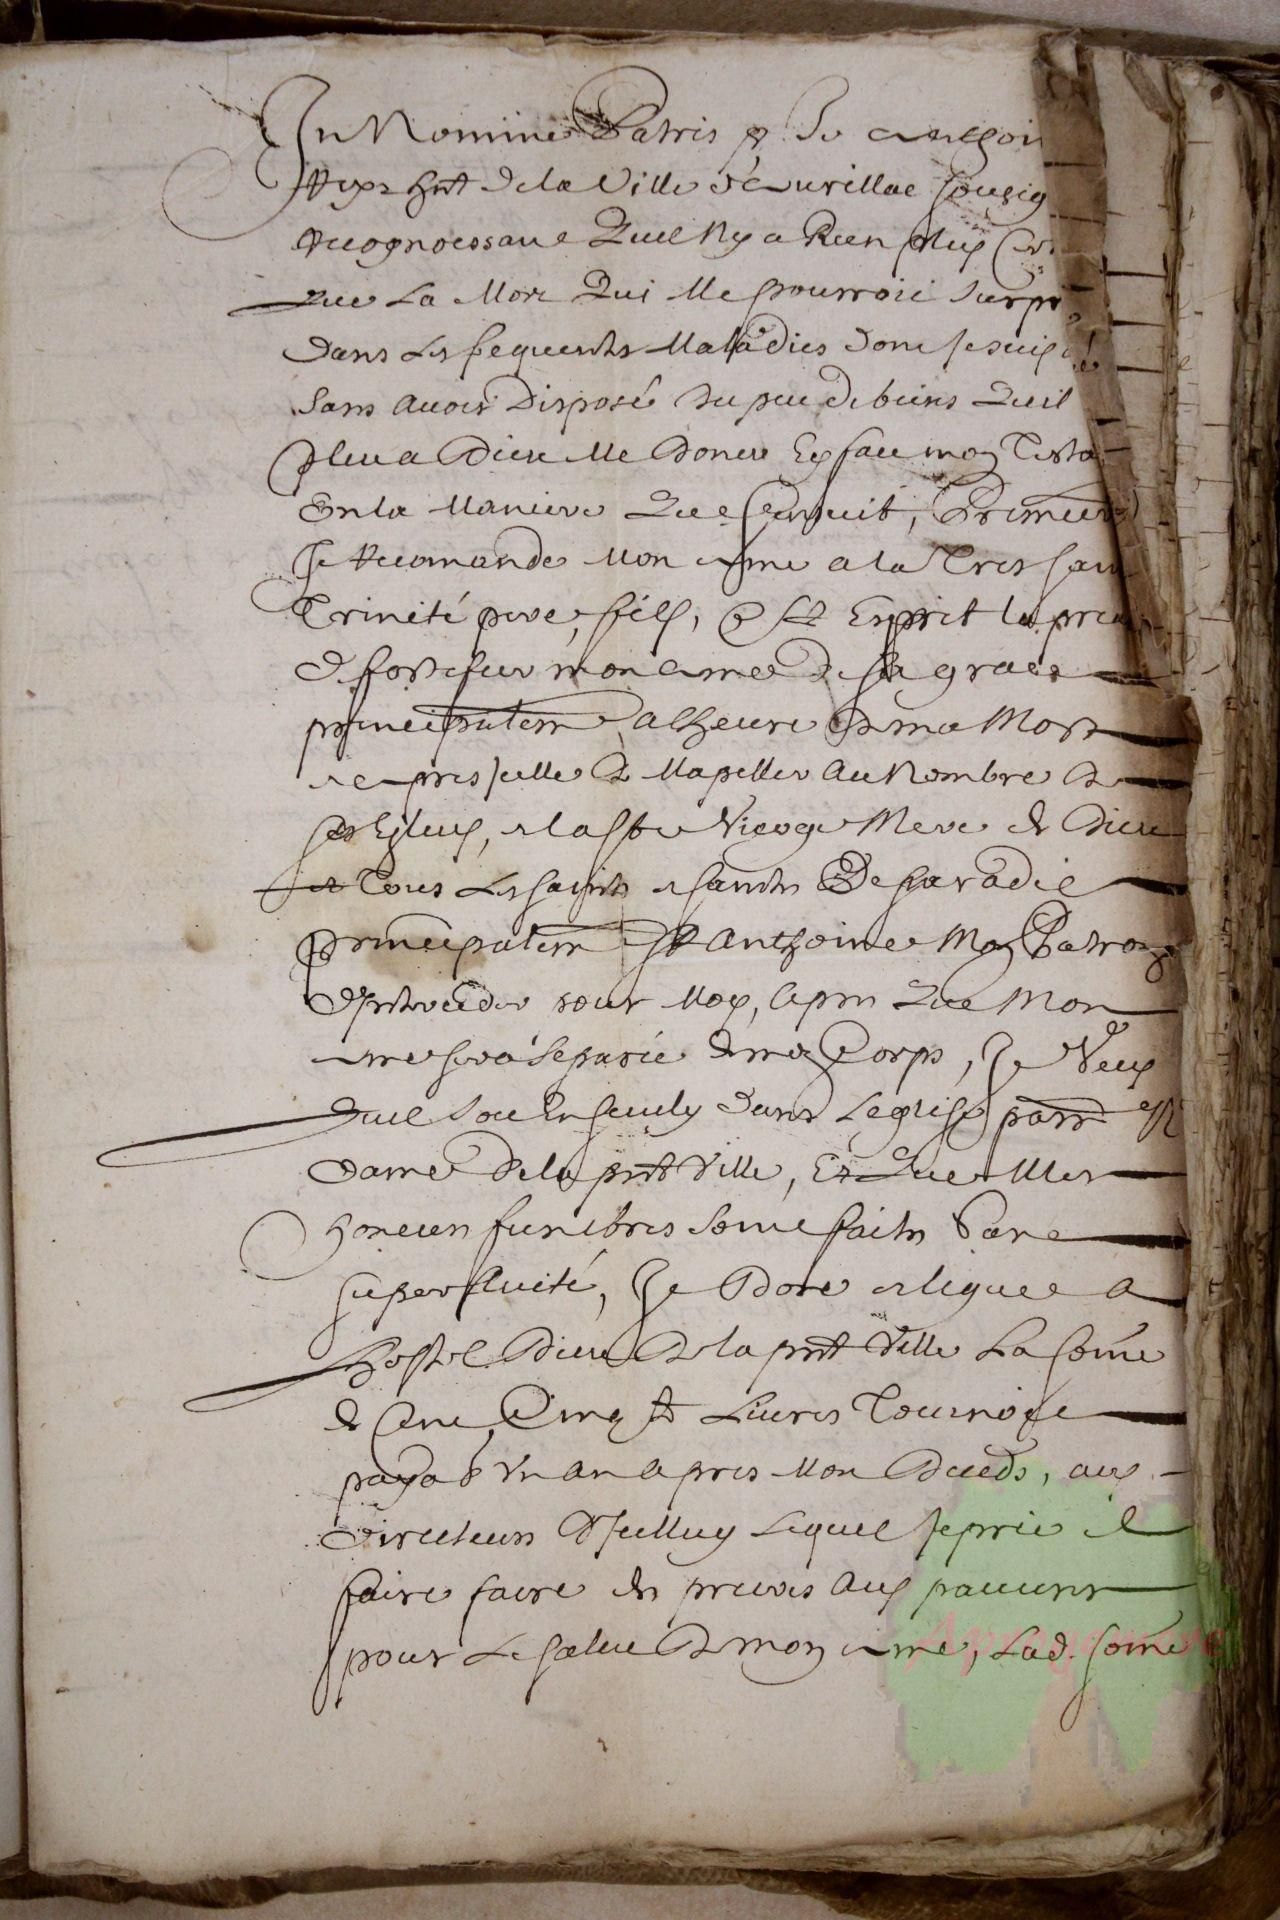 In Nomine Patris & Je Anthoin
habt de la Ville d'Aurillac sousig
Recognoissant Quil Ny a Rien plus Cer
que La Mort Qui Me pourroit surpr
dans Les frequentes Maladies dont Je suis
Sans avoir Disposé du peu de biens Quil
pleu a Dieu Me Doner Ey fait mon Testa
En la Maniere Que sensuit, Premier
Je Recomande Mon ame a la Tres sain
Trinité pere, fils, & St Esprit la pria
de fortifier mon ame de sa grace
principalem a lheure de ma Mort
apres Icelle de Mapeller au Nombre de
ses Esleus, a la Ste Vierge Mere de Dieu
et Tous Les saints & saintes De paradis
principalem St Anthoine Mon Patron
dInterceder pour Moy, apres Que Mon
ame sera separée de mon Corps, Je Veux
Quil soit Ensevely dans Leglise parr N
dame de la pnt Ville, Et Que Mes
honeurs funebres soint faits sans
superfluité, Je Done & legue a
Lhostel Dieu de la pnt Ville La some
de Cent Cinq Livres Tournois
payab Un an apres Mon Deceds, aux
directeurs dIcelluy Lequel Je prie de
faire faire des prieres aux pauvres
pour Le salut de mon ame, Lad. some